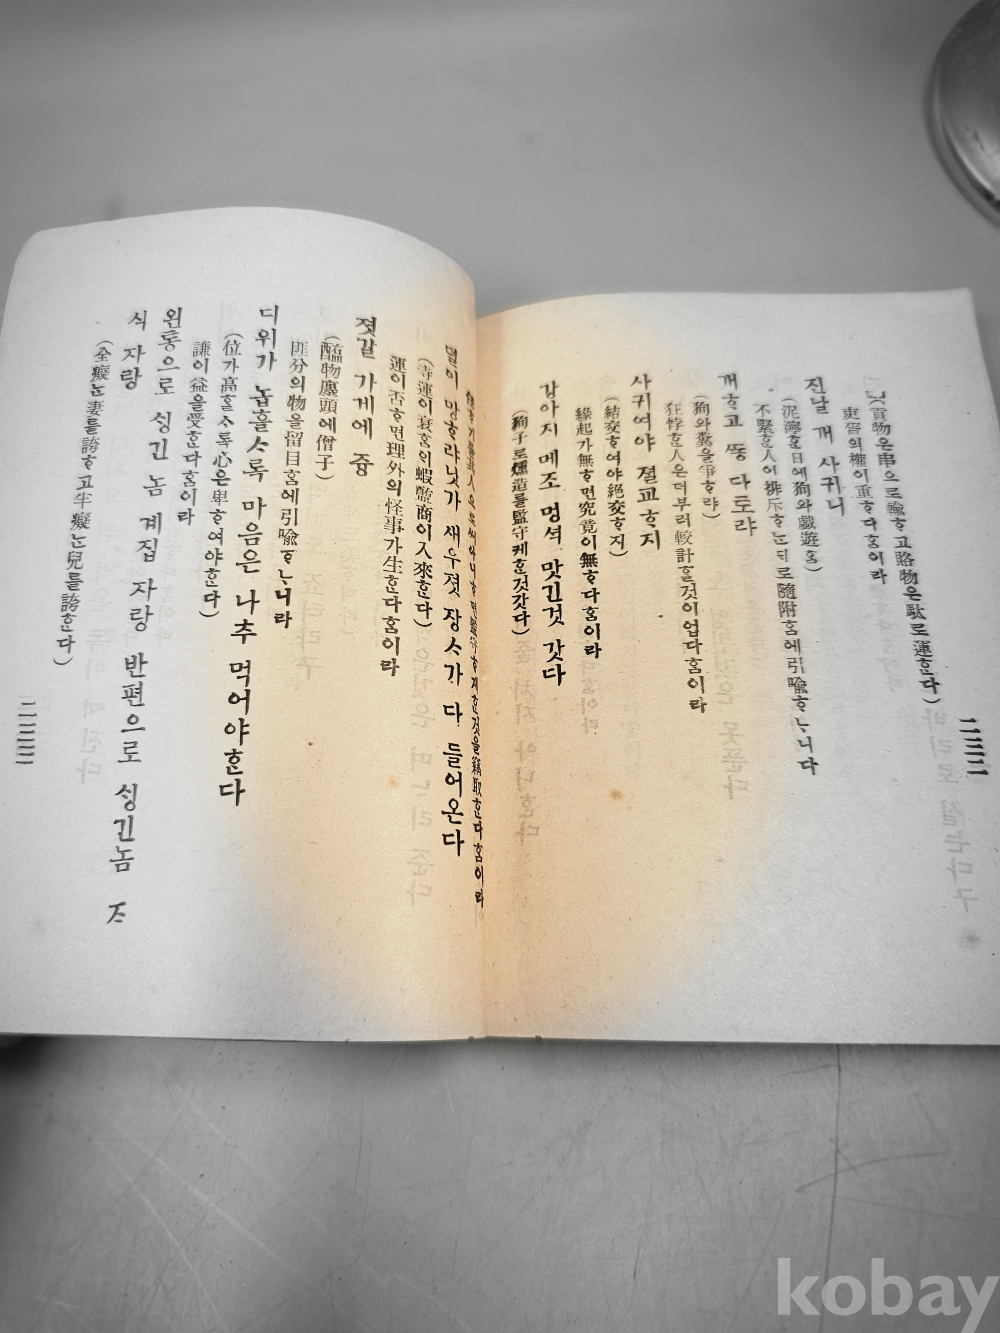 貢物은串으로輸ᄒᆞ고賂物은駄로運ᄒᆞᆫ다)
吏胥의權이重ᄒᆞ다홈이라
진날 개 사귀니
(泥濘ᄒᆞᆫ日에狗와戱遊홈)
不緊ᄒᆞᆫ人이排斥ᄒᆞᄂᆞᆫᄃᆡ로隨附홈에引喩ᄒᆞᄂᆞ니다
개ᄒᆞ고 ᄯᅩᆼ 다토랴
(狗와糞을爭ᄒᆞ랴)
狂悖ᄒᆞᆫ人은더부러較計ᄒᆞᆯ것이업다홈이라
사귀여야 졀교ᄒᆞ지
(結交ᄒᆞ여야絕交ᄒᆞ지)
緣起가無ᄒᆞ면究竟이無ᄒᆞ다홈이라
강아지 메조 멍셕 맛긴것 갓다
(狗子로燻造를監守케ᄒᆞᆫ것갓다)
一三二
것을竊取ᄒᆞᆫ다홈이라
뎔이 망ᄒᆞ랴닛가 새우젓 장ᄉᆞ가 다 들어온다
(寺運이衰홈ᄋᆡ蝦醢商이入來ᄒᆞᆫ다)
運이否ᄒᆞ면理外의怪事가生ᄒᆞᆫ다홈이라
젓갈 가게에 즁
(醢物廛頭에僧子)
匪分의物을留目홈에引喩ᄒᆞᄂᆞ니라
디위가 놉흘ᄉᆞ록 마음은 나추 먹어야ᄒᆞᆫ다
(位가高ᄒᆞᆯᄉᆞ록心은卑ᄒᆞ여야ᄒᆞᆫ다)
謙이益을受ᄒᆞᆫ다홈이라
왼통으로 싱긴 놈 계집 자랑 반편으로 싱긴놈 ᄌᆞ
식 자랑
(全癡ᄂᆞᆫ妻를誇ᄒᆞ고半癡ᄂᆞᆫ兒를誇ᄒᆞᆫ다)
一三三
kobay